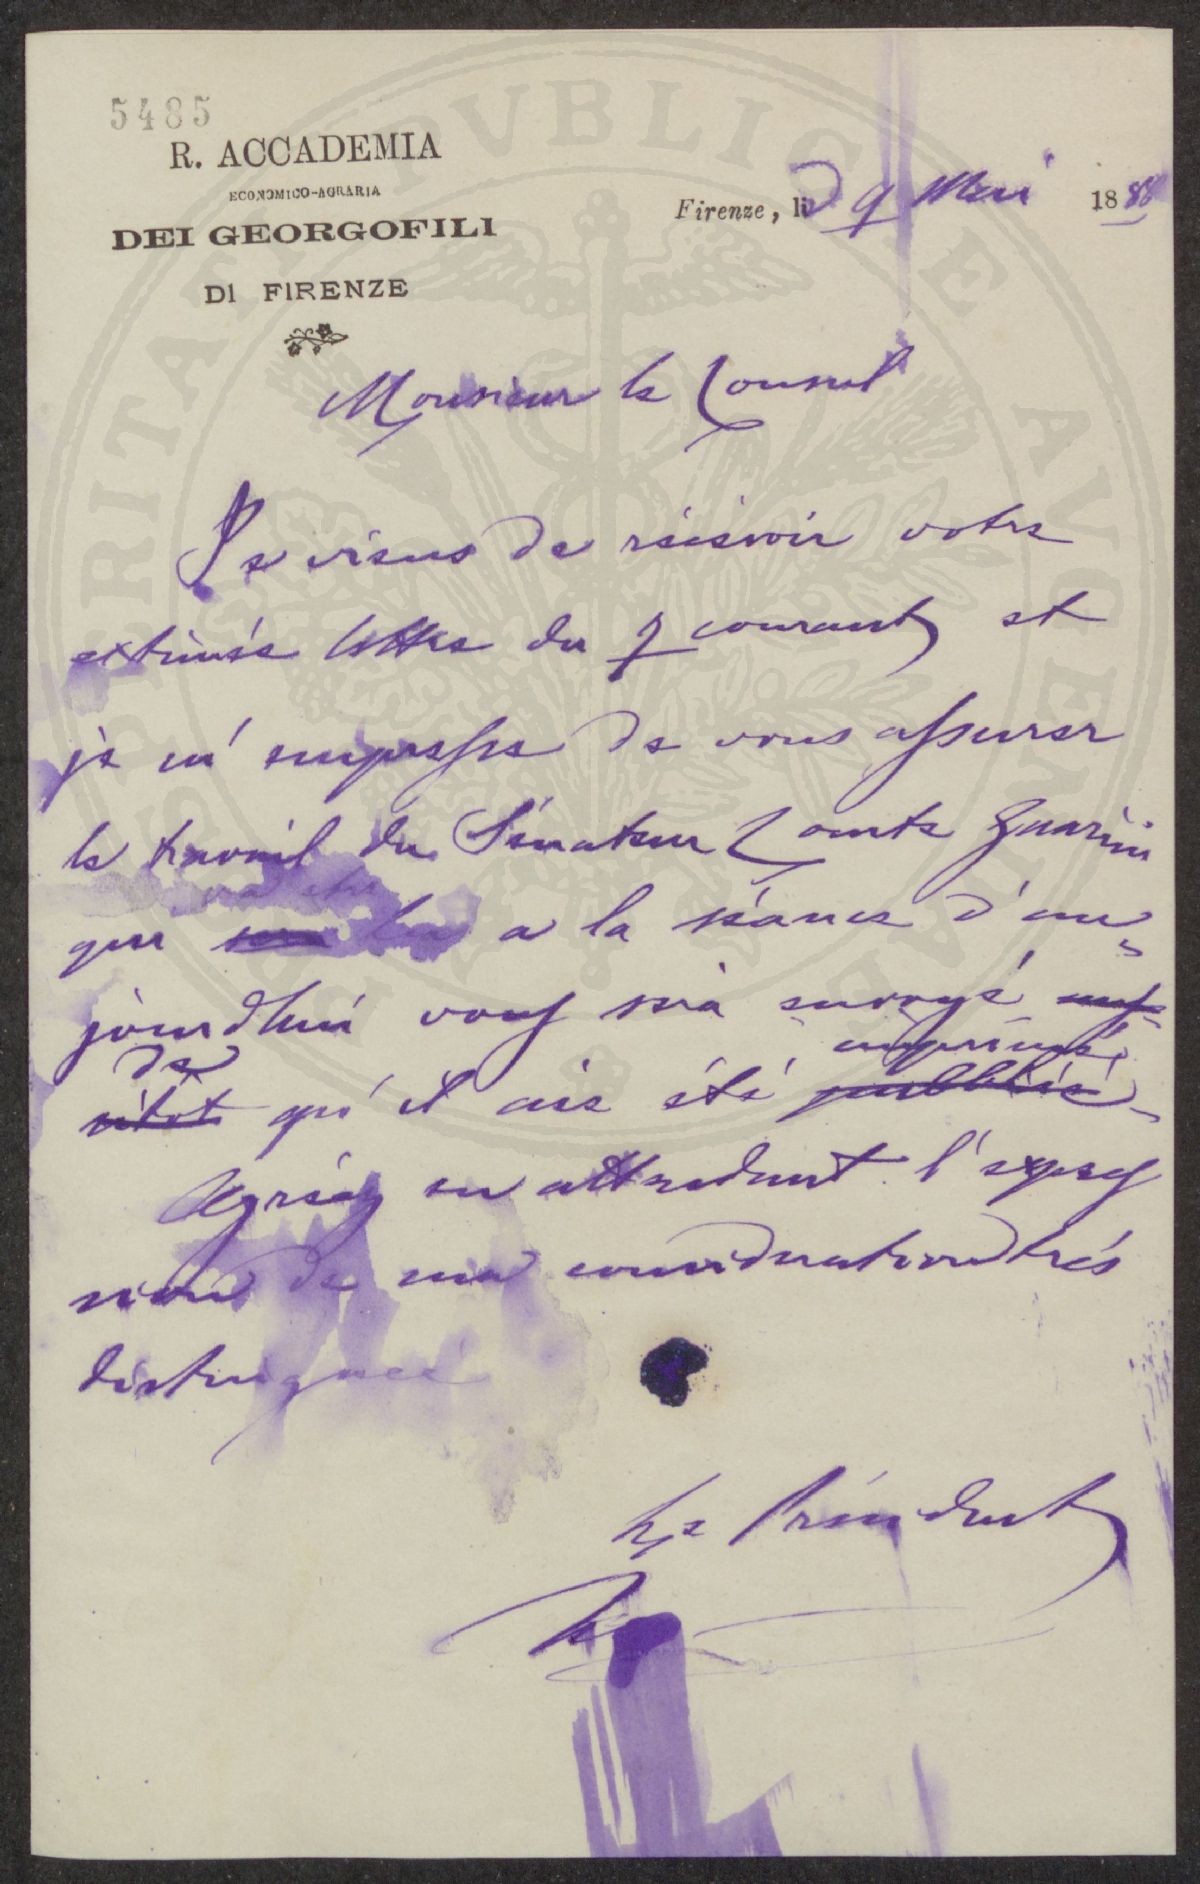 5485
R. ACCADEMIA
ECONOMICO-AGRARIA
DEI GEORGOFILI
DI FIRENZE
PROSPERITATI PVBLICAE AVGENDAE
Firenze, li 9 Mai 1888
Monsieur le Consul
Je viens de récévoir votre
estimée lettre du 7 courant et
je m'empresse de vous assurer
le travail du Sénateur Comte Guarini
que lu a la séance d'au
jourdhui vous sera envoyé
de imprimé
vitot qu'il aie été pubblicé
Agréez en attendant l'expres
sion de ma considération trés
distinguée
Le Président